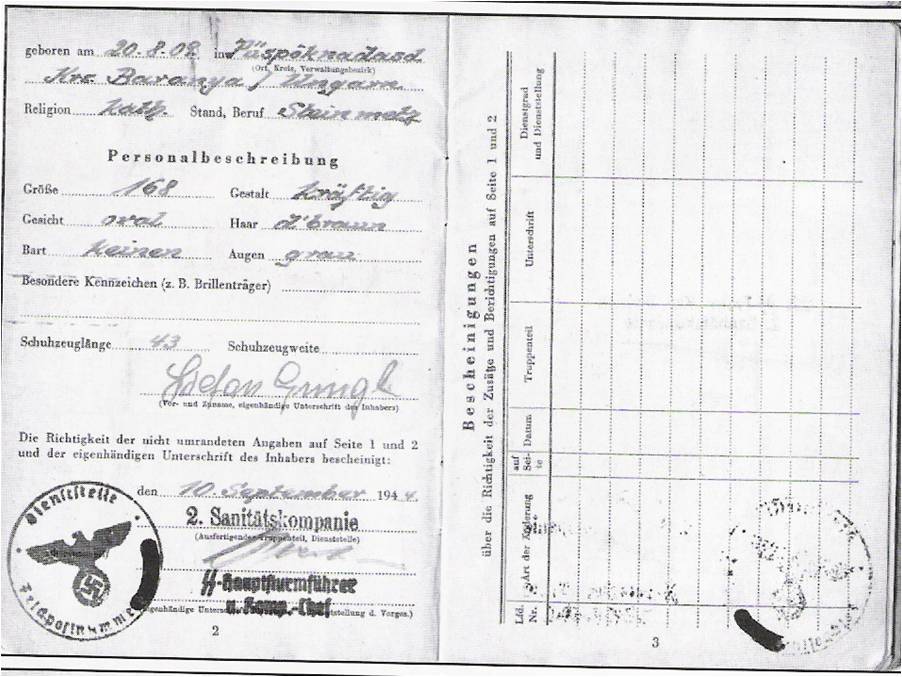 geboren am 20.8.08 in Püspöknadasd
(Ort, Kreis, Verwaltungsbezirk)
Krs. Baranya, Ungarn
Religion kath. Stand, Beruf Steinmetz
Personalbeschreibung
Größe 168 Gestalt kräftig
Gesicht oval Haar d'braun
Bart keinen Augen grau
Besondere Kennzeichen (z. B. Brillenträger)
Schuhzeuglänge 43 Schuhzeugweite
Stefan
(Vor- und Zuname, eigenhändige Unterschrift des Inhabers)
Die Richtigkeit der nicht umrandeten Angaben auf Seite 1 und 2
und der eigenhändigen Unterschrift des Inhabers bescheinigt:
den 10. September 1944
2. Sanitätskompanie
(Ausfertigender Truppenteil, Dienststelle)
SS-Hauptsturmführer
u. Komp.-Chef
Dienststelle
2
Bescheinigungen
über die Richtigkeit der Zusätze und Berichtigungen auf Seite 1 und 2
Dienstgrad
und Dienststellung
Unterschrift
Truppenteil
Datum
auf
Sei-
te
Art der Änderung
Lfd.
Nr.
3